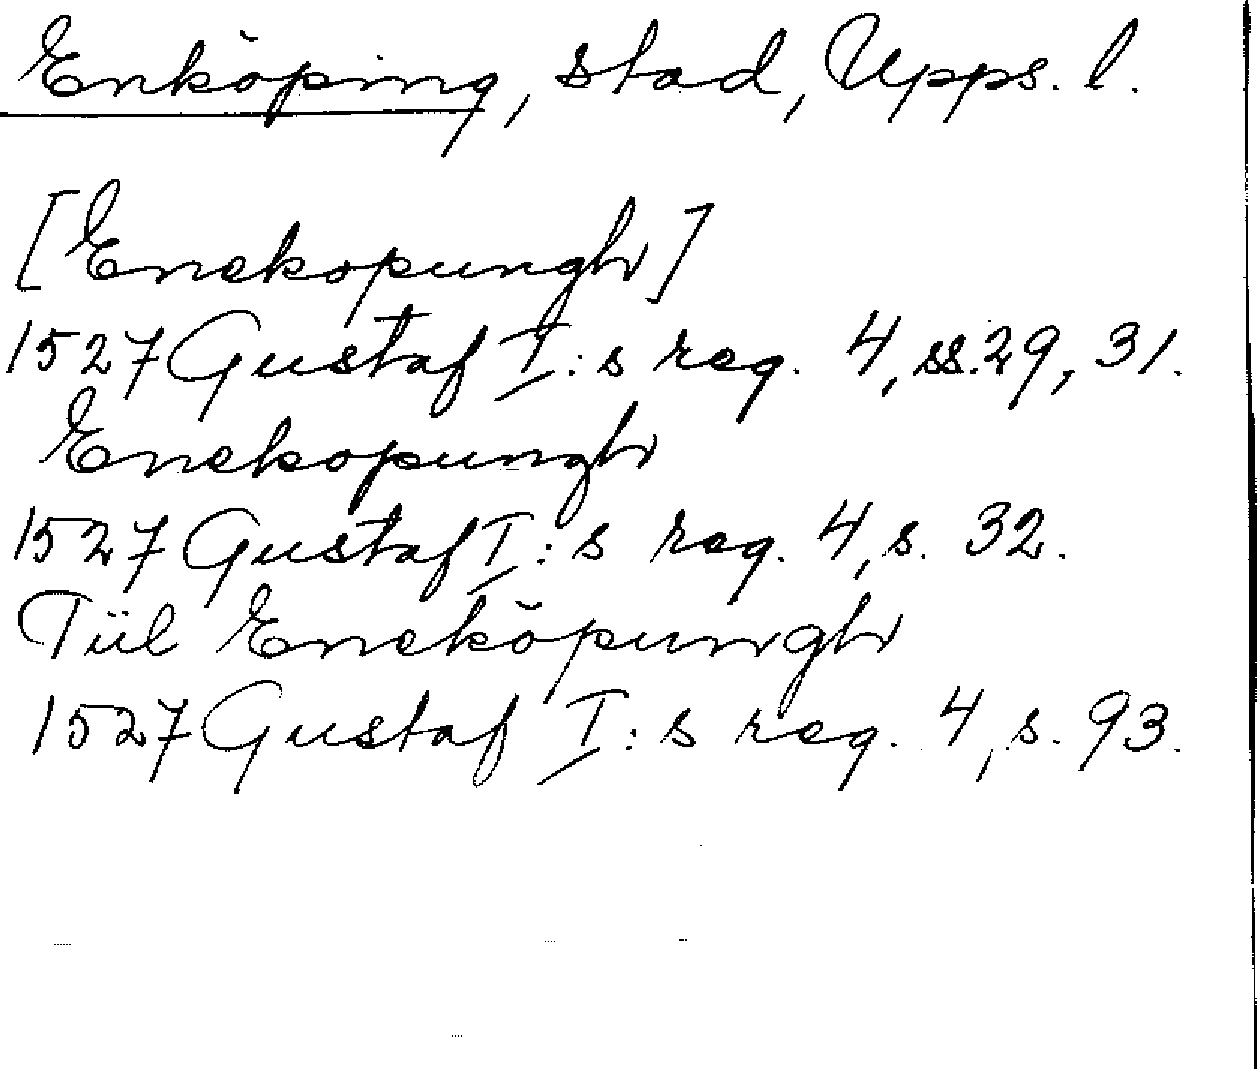 Enköping, stad, Upps. l.
[Enekopungh]
1527 Gustaf I:s reg. 4, ss. 29, 31.
Enekopungh
1527 Gustaf I:s reg. 4, s. 32.
Tiil Eneköpungh
1527 Gustaf I:s reg. 4, s. 93.